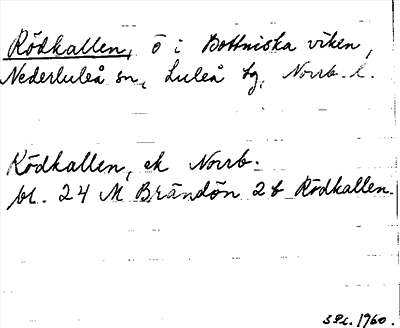 Rödkallen, ö i Bottniska viken,
Nederluleå sn, Luleå tg, Norrb. l.
Rödkallen, ek Norrb.
bl. 24 M Brändön 2 b Rödkallen.
1960.